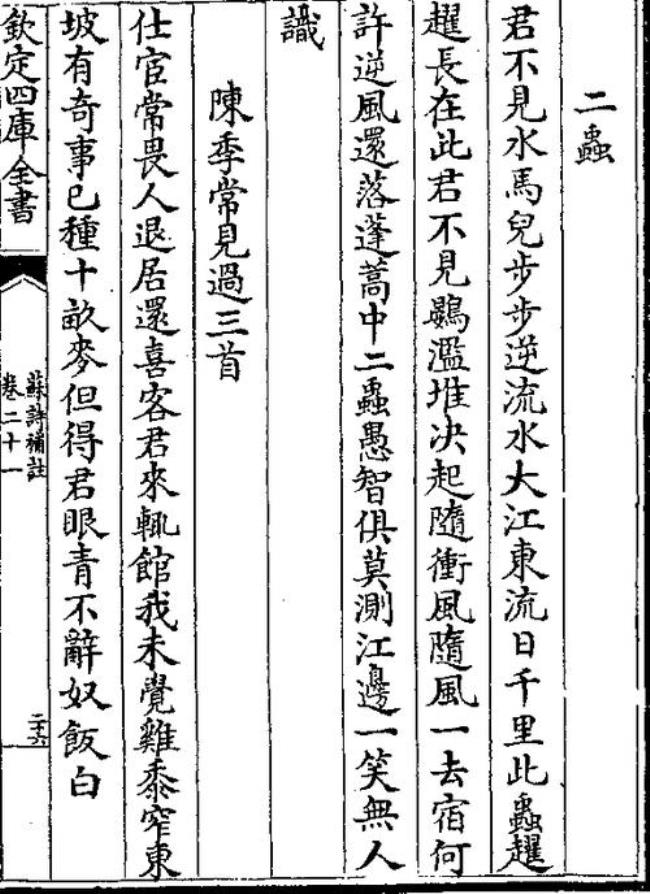 二蟲
君不見水馬兒步步逆流水大江東流日千里此蟲趯
趯長在此君不見鷃濫堆決起隨衝風隨風一去宿何
許逆風還落蓬蒿中二蟲愚智俱莫測江邊一笑無人
識
陳季常見過三首
仕宦常畏人退居還喜客君來輒館我未覺雞黍窄東
坡有奇事已種十畝麥但得君眼青不辭奴飯白
欽定四庫全書
蘇詩補註
卷二十一
二十六